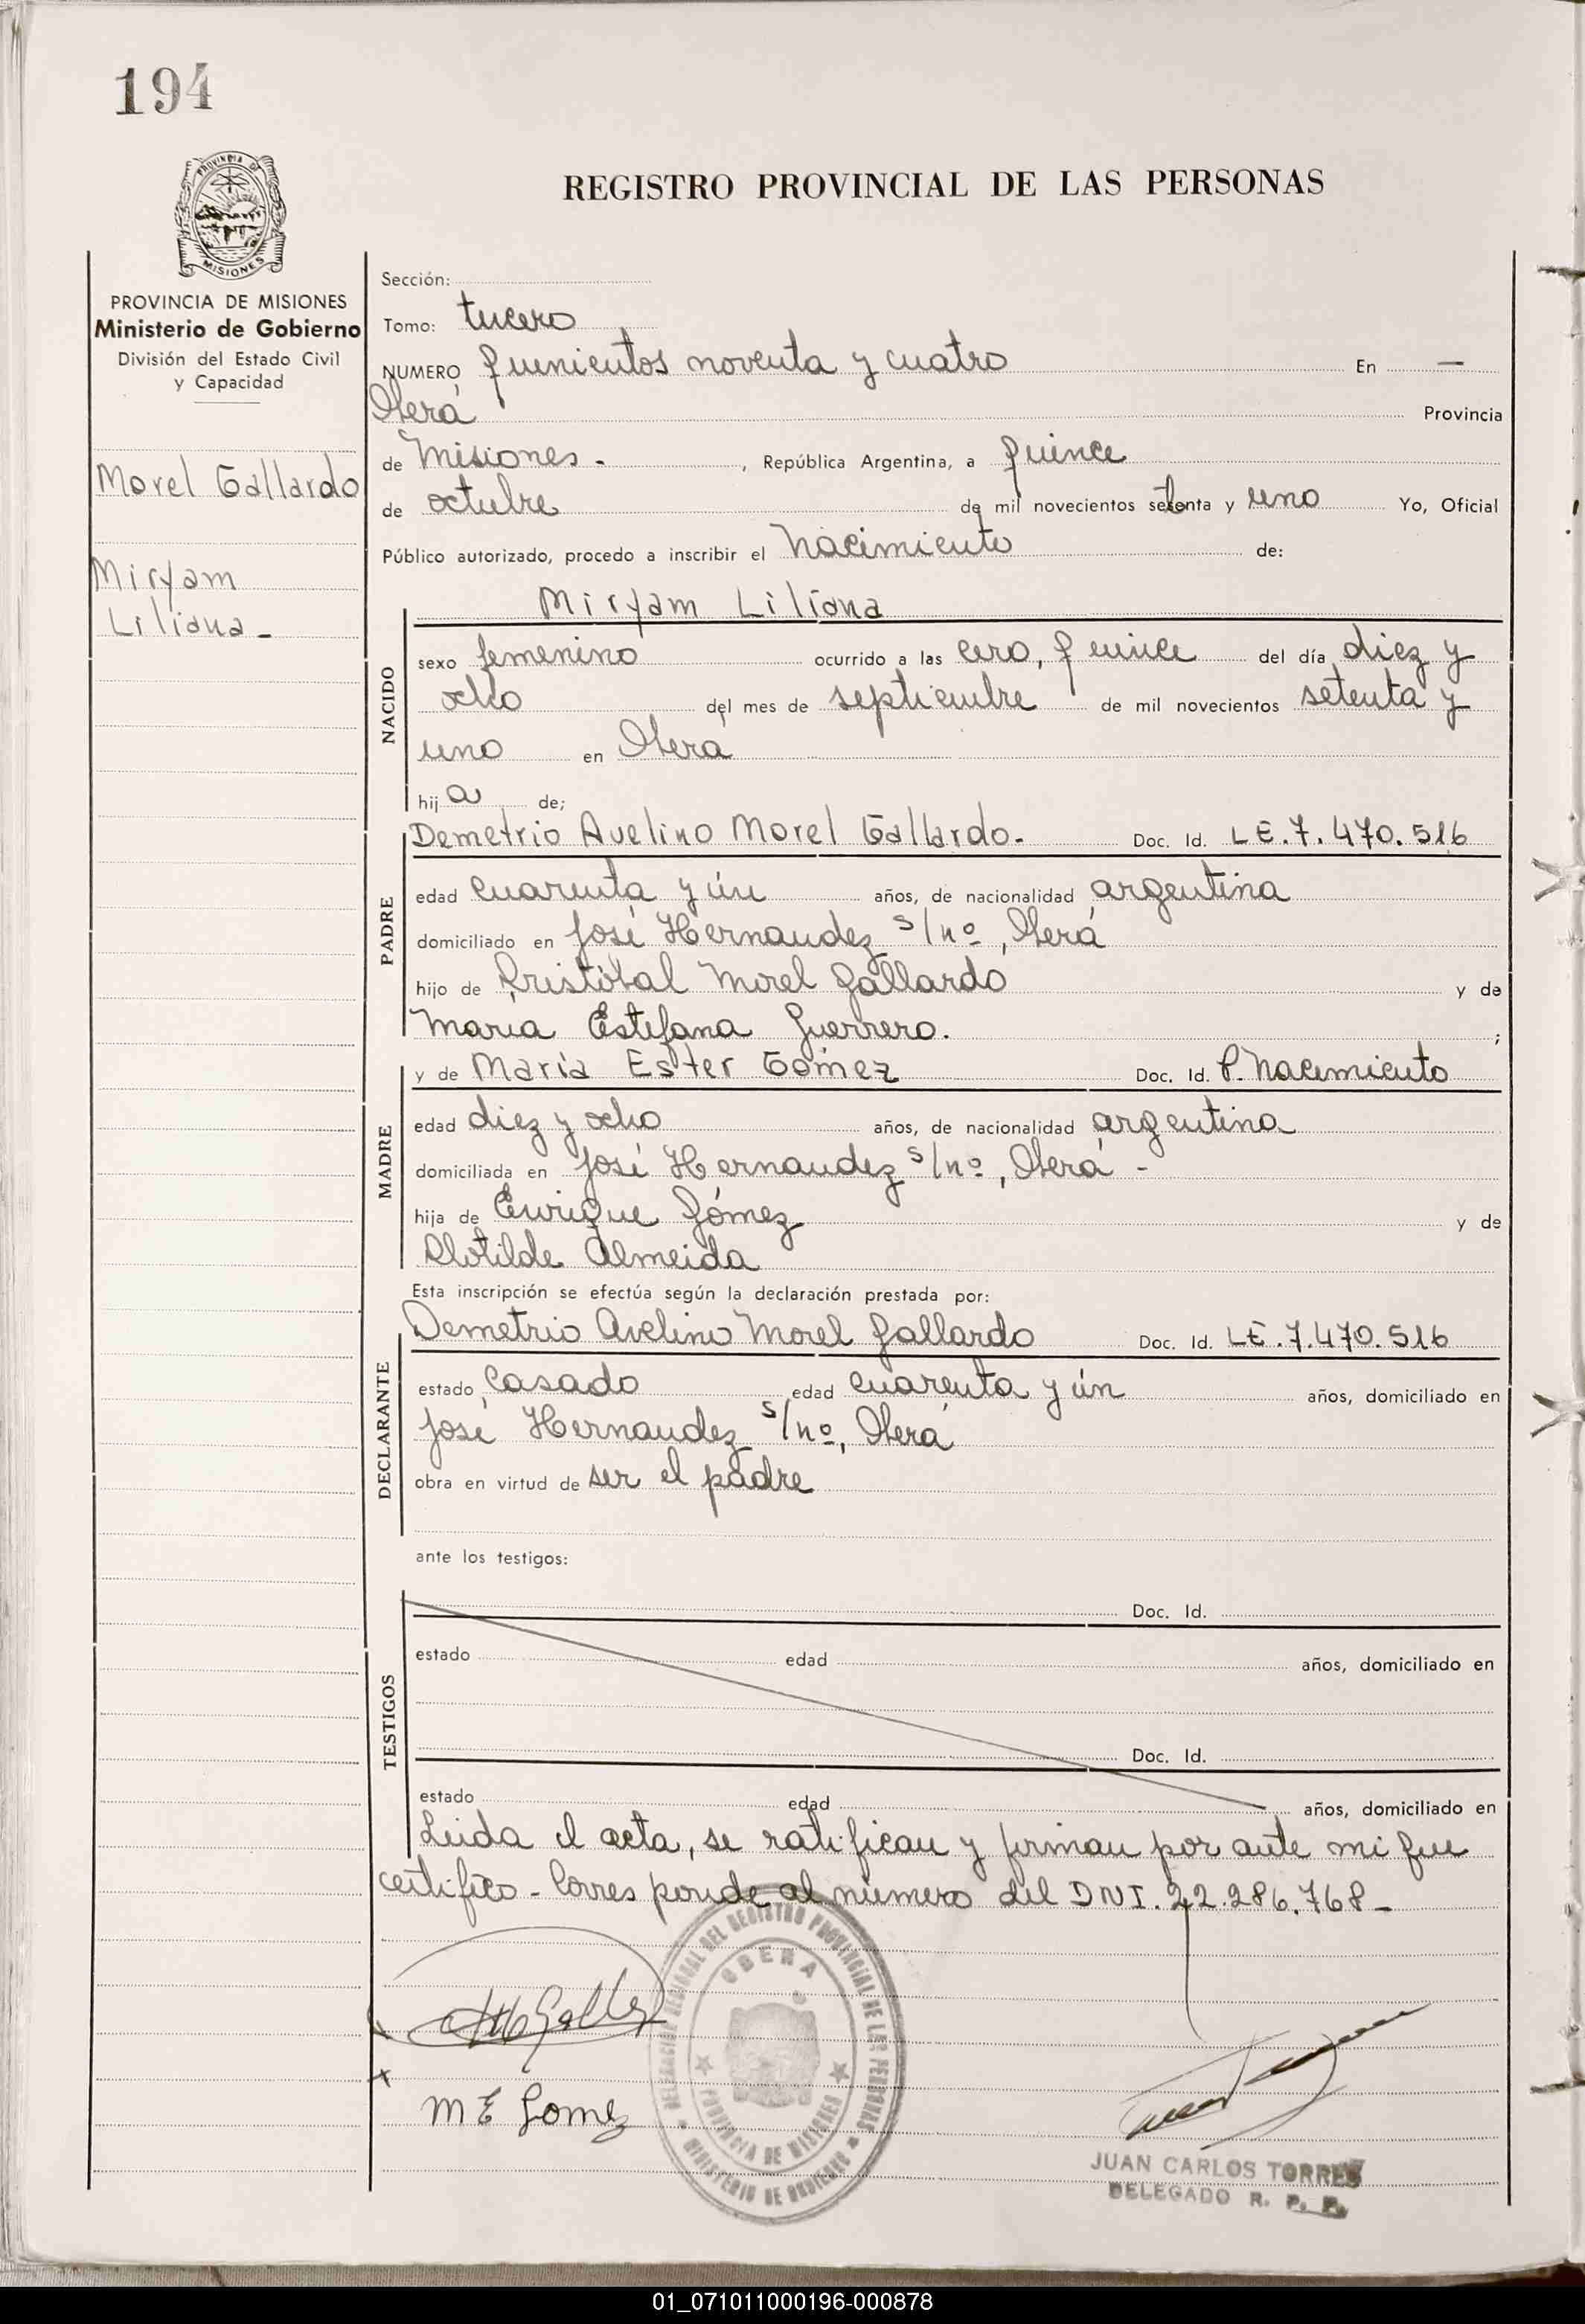 194
PROVINCIA DE
MISIONES
REGISTRO PROVINCIAL DE LAS PERSONAS
PROVINCIA DE MISIONES
Ministerio de Gobierno
División del Estado Civil
y Capacidad
Morel Gallardo
Miryam
Liliana -
Sección:
Tomo: tercero
NUMERO quinientos noventa y cuatro En —
Oberá Provincia
de Misiones - , República Argentina, a quince
de octubre de mil novecientos setenta y uno Yo, Oficial
Público autorizado, procedo a inscribir el nacimiento de:
Miryam Liliana
NACIDO
sexo femenino ocurrido a las cero, quince del día diez y
ocho del mes de septiembre de mil novecientos setenta y
uno en Oberá
hija de;
PADRE
Demetrio Avelino Morel Gallardo. Doc. Id. LE. 7. 470. 516
edad cuarenta y ún años, de nacionalidad argentina
domiciliado en José Hernandez s/nº, Oberá
hijo de Cristóbal Morel Gallardo y de
María Estefana Guerrero. ;
MADRE
y de María Ester Gómez Doc. Id. P. Nacimiento
edad diez y ocho años, de nacionalidad argentina
domiciliada en José Hernandez s/nº, Oberá -
hija de Enrique Gómez y de
Clotilde Almeida
Esta inscripción se efectúa según la declaración prestada por:
DECLARANTE
Demetrio Avelino Morel Gallardo Doc. Id. LE. 7.470.516
estado casado edad cuarenta y ún años, domiciliado en
José Hernandez s/nº, Oberá
obra en virtud de ser el padre
ante los testigos:
TESTIGOS
Doc. Id.
estado edad años, domiciliado en
Doc. Id.
estado edad años, domiciliado en
Leida el acta, se ratifican y firman por ante mi que
certifico - Corresponde al número del DNI. 22.286.768 -
DELEGACION REGIONAL DEL REGISTRO PROVINCIAL DE LAS PERSONAS
OBERA
PROVINCIA DE MISIONES
MINISTERIO DE GOBIERNO
M E Gomez
JUAN CARLOS TORRES
DELEGADO R. P. P.
01_071011000196-000878